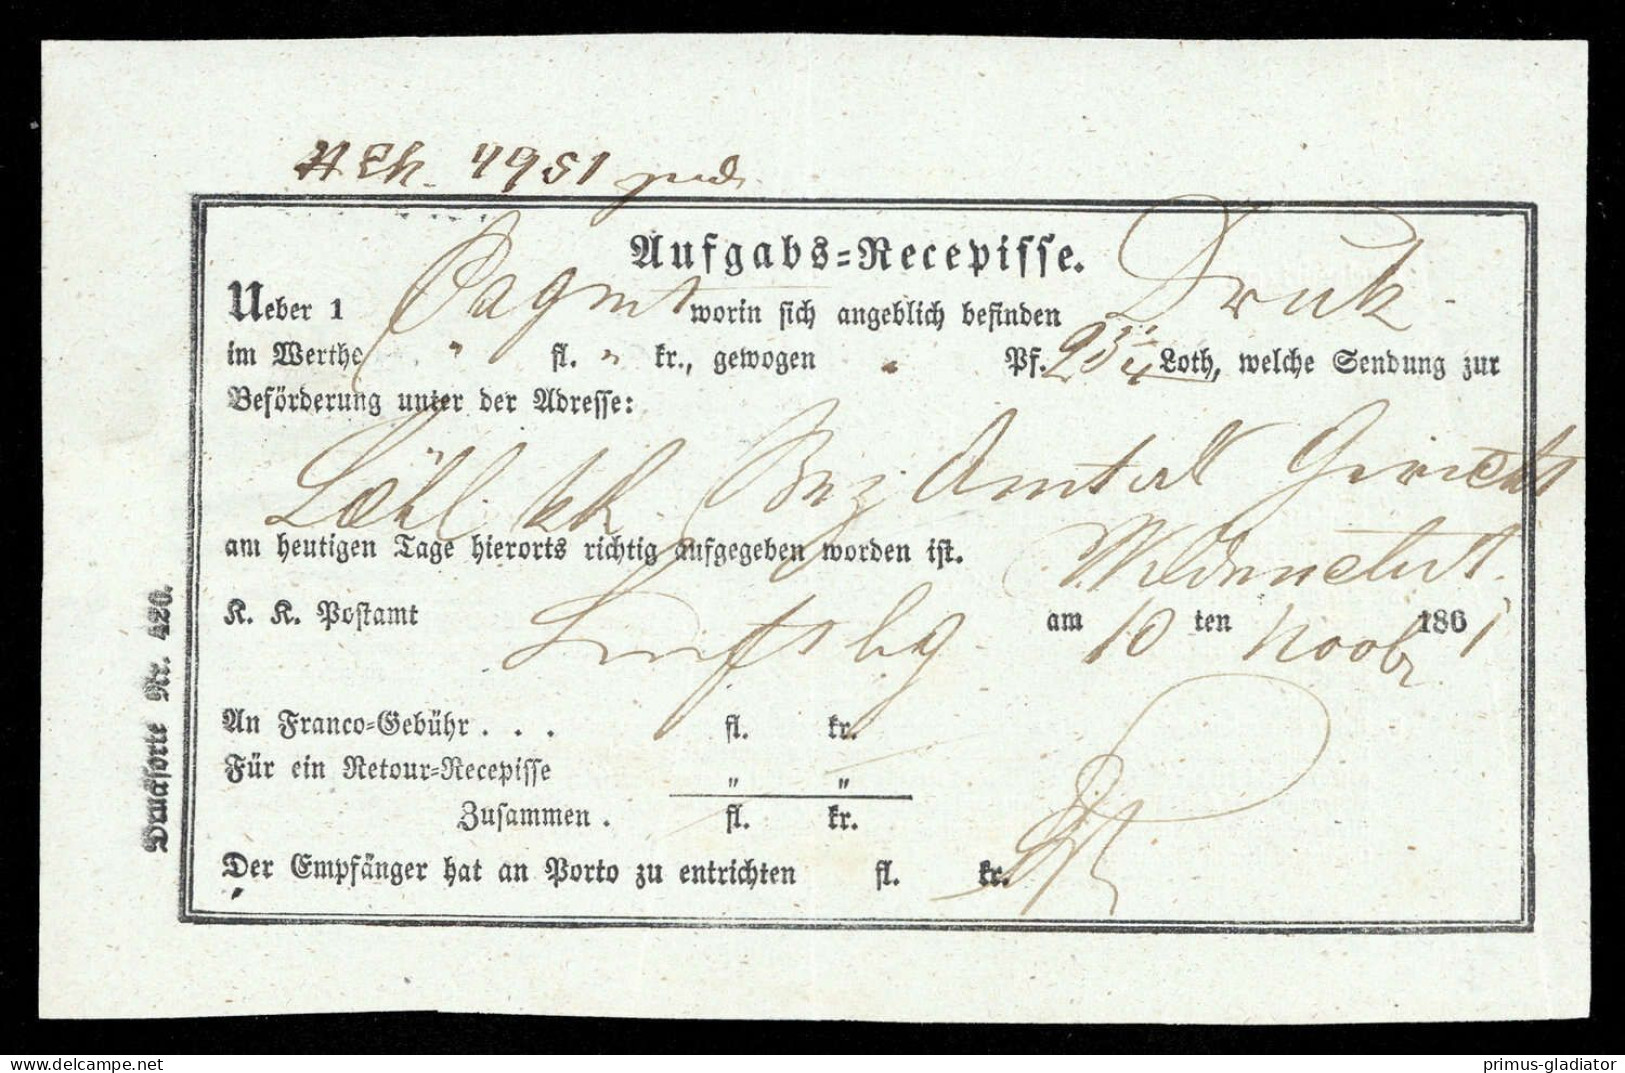 4951
Aufgabs=Recepisse.
Ueber 1 worin sich angeblich befinden Druk
im Werthe " fl. " kr., gewogen " Pf. 23 1/4 Loth, welche Sendung zur
Beförderung unter der Adresse:
Löbl kk Bez Amt als Gericht
am heutigen Tage hierorts richtig aufgegeben worden ist.
K. K. Postamt am 10 ten 1861
An Franco=Gebühr . . . fl. kr.
Für ein Retour=Recepisse " "
Zusammen . fl. kr.
Der Empfänger hat an Porto zu entrichten fl. kr.
Drucksorte Nr. 420.
www.delcampe.net
primus-gladiator